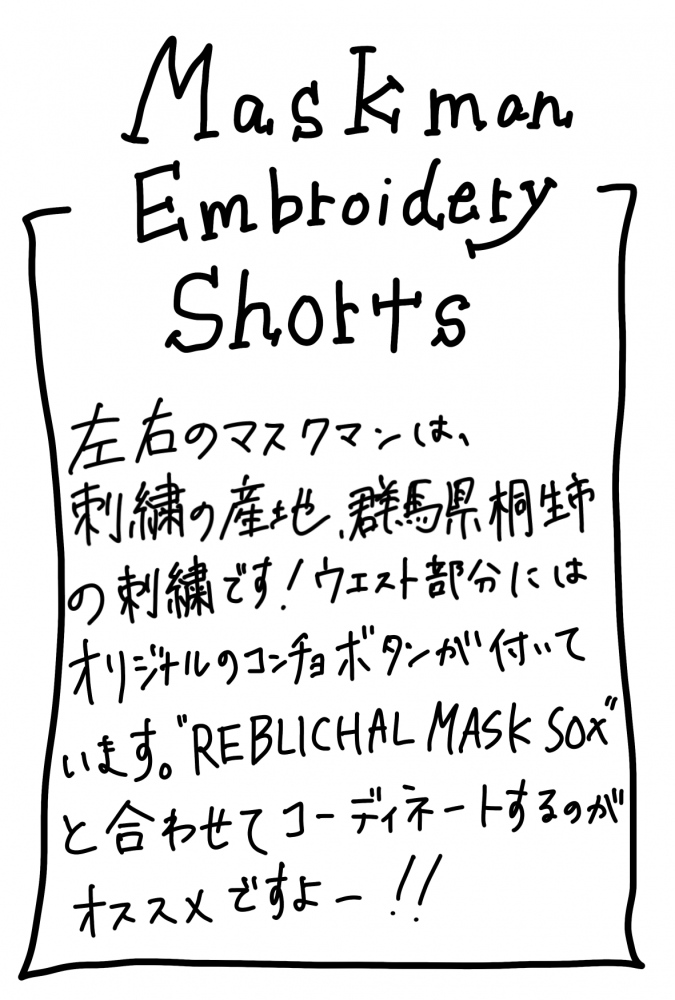 Maskman
Embroidery
Shorts
左右のマスクマンは、
刺繍の産地、群馬県桐生市
の刺繍です!ウエスト部分には
オリジナルのコンチョボタンが付いて
います。"REBLICHAL MASK SOX"
と合わせてコーディネートするのが
オススメですよー!!